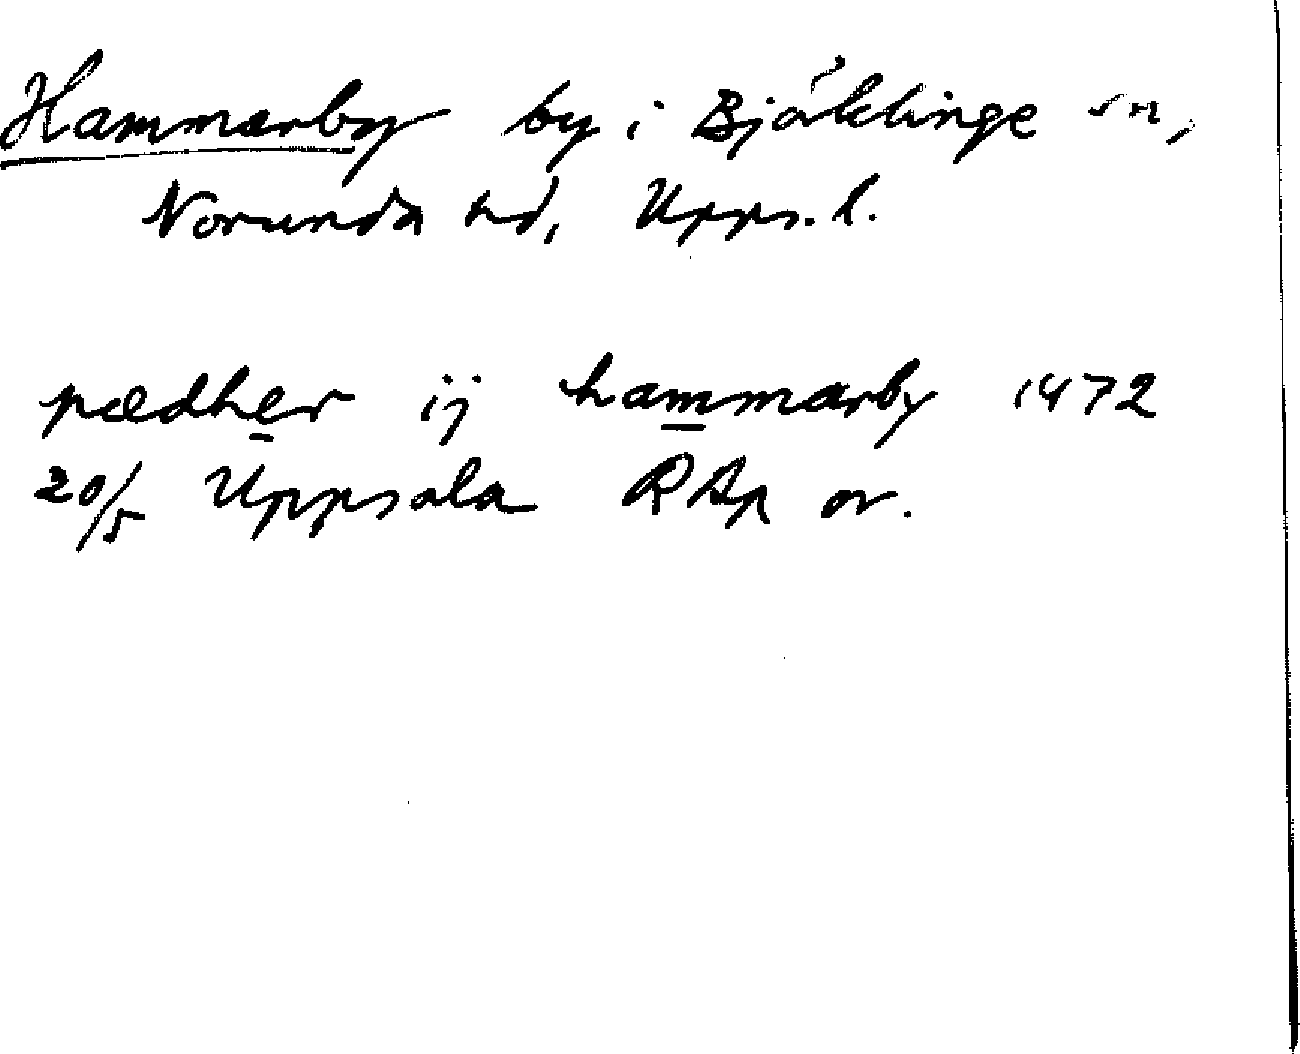 Hammarby by i Bjäklinge sn,
Norunda hd, Upps. l.
pædher ij hammarby 1472
20/5 Uppsala RAp or.